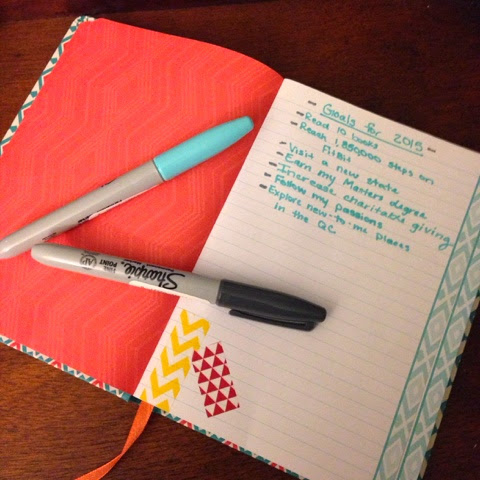 - Goals for 2015 -
- Read 10 books
- Reach 1,850,000 steps on
Fitbit
- Visit a new state
- Earn my Masters degree
- Increase charitable giving
- Follow my passions
- Explore new-to-me places
in the QC
Sharpie
POINT
AP